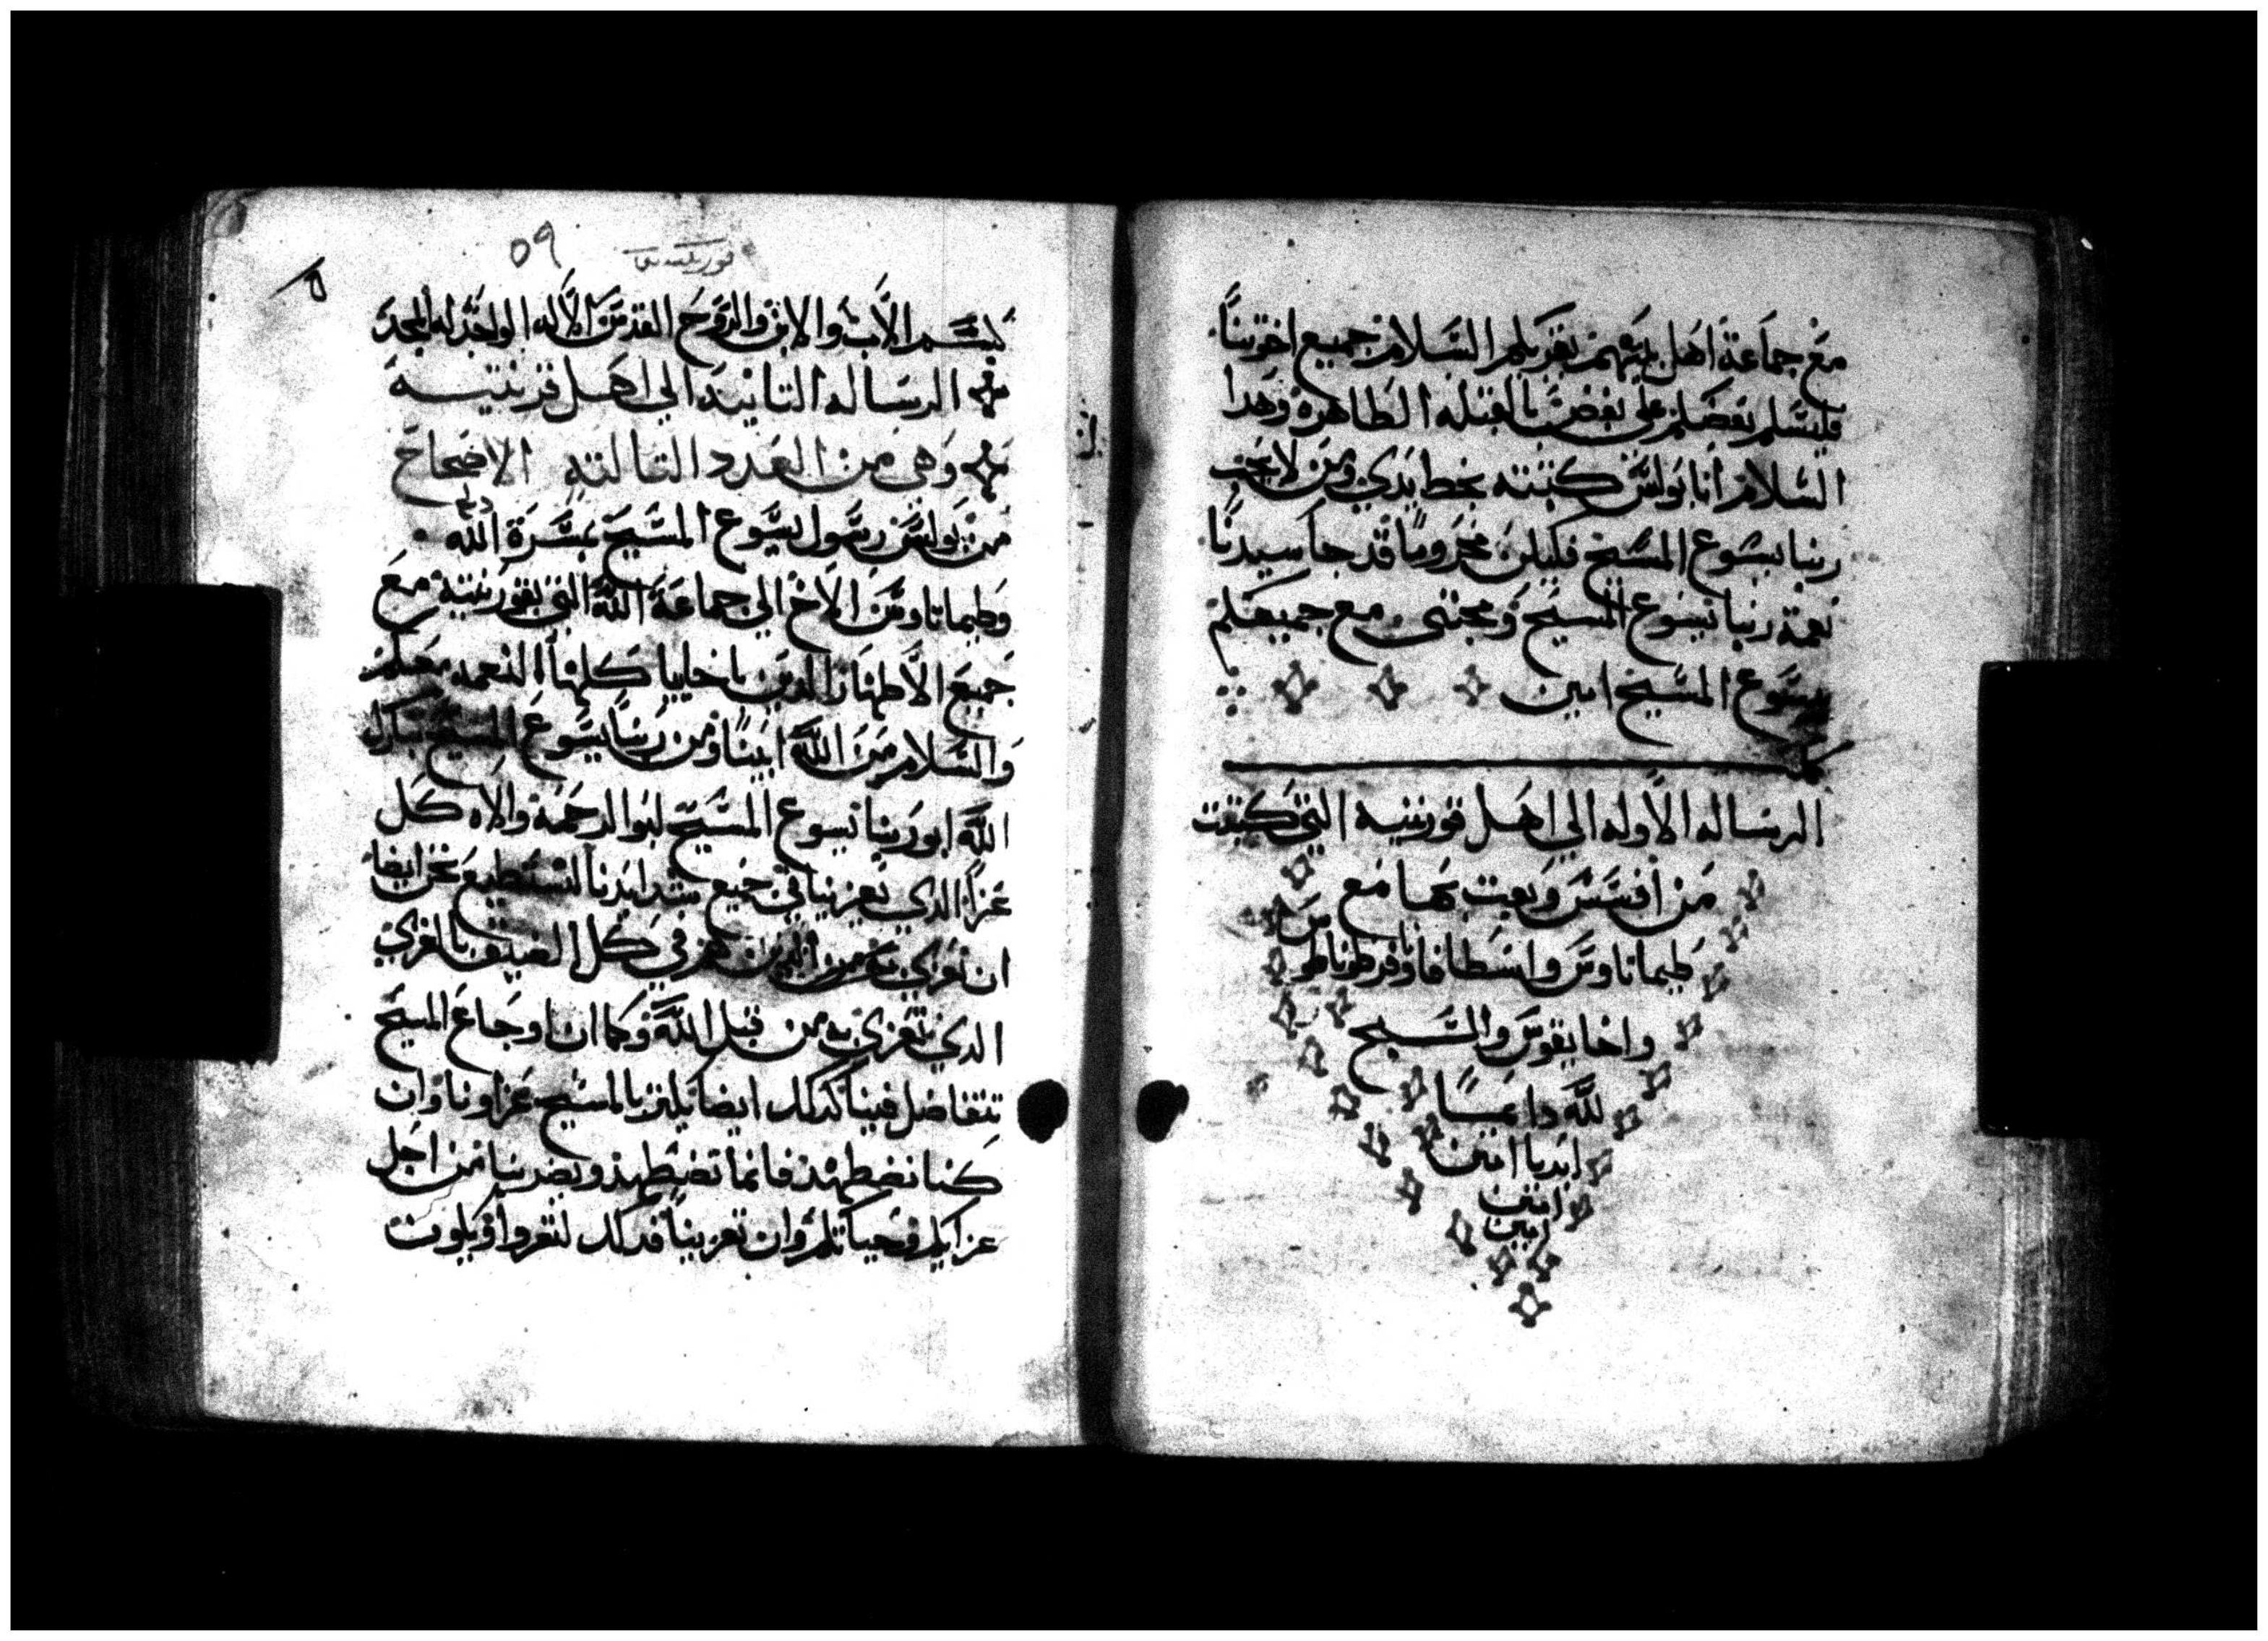 مع جماعة اهل بيتهم بقريكم السلام جميع اخوتنا
فليسلم بعضكم على بعض بالقبله الطاهرة وهدا
السلام انا بولس كتبته بخط يدي ومن لا يحب
ربنا يسوع المسيح فليكن محروما قد جا سيدنا
نعمة ربنا يسوع المسيح ومحبتي مع جميعكم
يسوع المسيح امين
الرساله الاوله الي اهل قورنتيه التي كتبت
من افسس وبعت بها مع
طيماتاوس واسطافانا وفرطوناطوس
واخايقوس والسبح
لله دايما
ابديا امين
امين
امين
٥٩
بسم الاب والابن والروح القدس الاله الواحد له المجد
الرساله التانيه الي اهل قرنتيه
وهي من العدد التالته الاصحاح
من بولس رسول يسوع المسيح بمسرة الله
وطيماتاوس الاخ الي جماعة الله التي بقورنتية مع
جميع الاطهار الدين باخاييا كلها النعمه معكم
والسلام من الله ابينا ومن ربنا يسوع المسيح تبارك
الله ابو ربنا يسوع المسيح ابو الرحمة والاه كل
عزا الدي يعزينا في جميع شدايدنا لنستطيع نحن ايضا
ان نعزي الدين هم في كل الضيق بالعزي
الدي نتعزي به من قبل الله وكما ان اوجاع المسيح
تتفاضل فينا كدلك ايضا يكتر بالمسيح عزاونا وان
كنا نضطهد فانما نضطهد ويضر بنا من اجل
عزايكم وحياتكم وان تعزينا فدلك لتعزوا ويكون